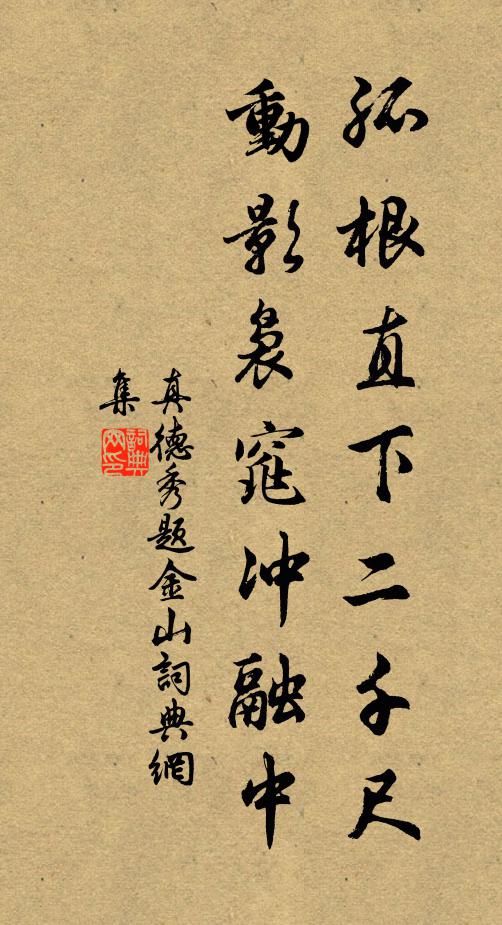 孤根直下二千尺
動影裊窕冲融中
真德秀题金山詞典網
集
詞典
网印